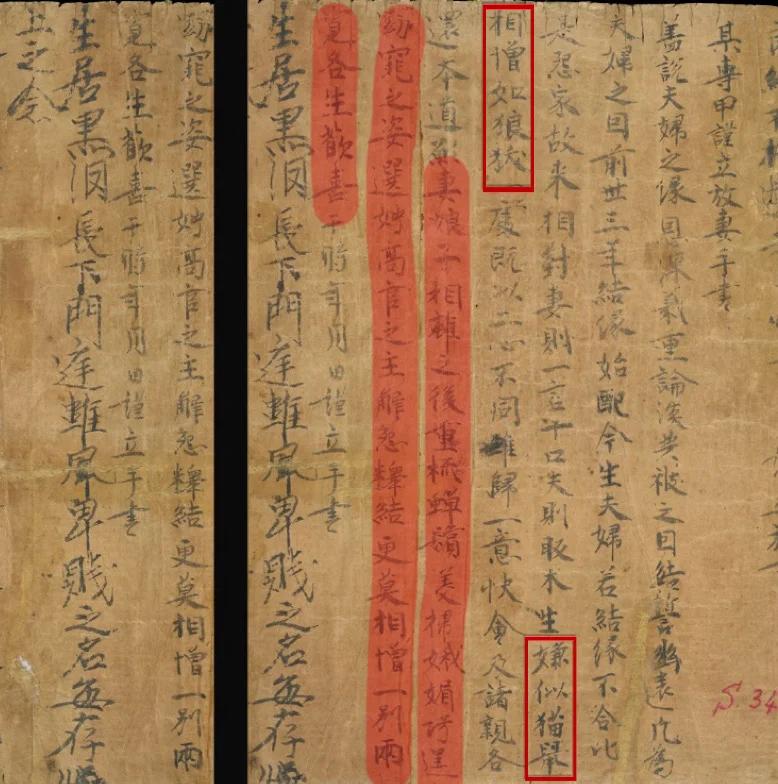 S 34
某專甲謹立放妻手書
蓋說夫婦之緣恩深義重論談共被之因結誓幽遠凡為
夫婦之因前世三年結緣始配今生夫婦若結緣不合比
是怨家故來相對妻則一言十口夫則販木生嫌似猫鼠
相憎如狼犺一處既以二心不同難歸一意快會及諸親各
還本道願妻娘子相離之後重梳蟬鬢美掃娥媚巧逞
窈窕之姿選娉高官之主解怨釋結更莫相憎一別兩
寬各生歡喜于時年月日謹立手書
生居黑長下門庭雖卑賤之名每存
窈窕之姿選娉高官之主解怨釋結更莫相憎一別兩
寬各生歡喜于時年月日謹立手書
生居黑長下門庭雖卑賤之名每存
上之念